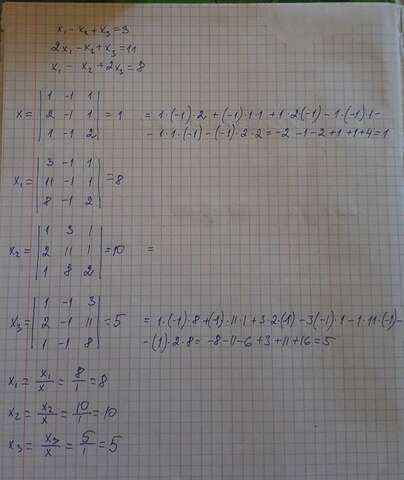 x₁ - x₂ + x₃ = 3
2x₁ - x₂ + x₃ = 11
x₁ - x₂ + 2x₃ = 8
x = |1 -1 1| = 1 = 1·(-1)·2 + (-1)·1·1 + 1·2(-1) - 1·(-1)·1 -
|2 -1 1| - 1·1·(-1) - (-1)·2·2 = -2 -1 -2 +1 +1 +4 = 1
|1 -1 2|
x₁ = |3 -1 1| = 8
|11 -1 1|
|8 -1 2|
x₂ = |1 3 1| = 10 =
|2 11 1|
|1 8 2|
x₃ = |1 -1 3| = 5 = 1·(-1)·8 + (-1)·11·1 + 3·2·(-1) - 3(-1)·1 - 1·11·(-1) -
|2 -1 11| - (-1)·2·8 = -8 -11 -6 +3 +11 +16 = 5
|1 -1 8|
x₁ = x₁/x = 8/1 = 8
x₂ = x₂/x = 10/1 = 10
x₃ = x₃/x = 5/1 = 5